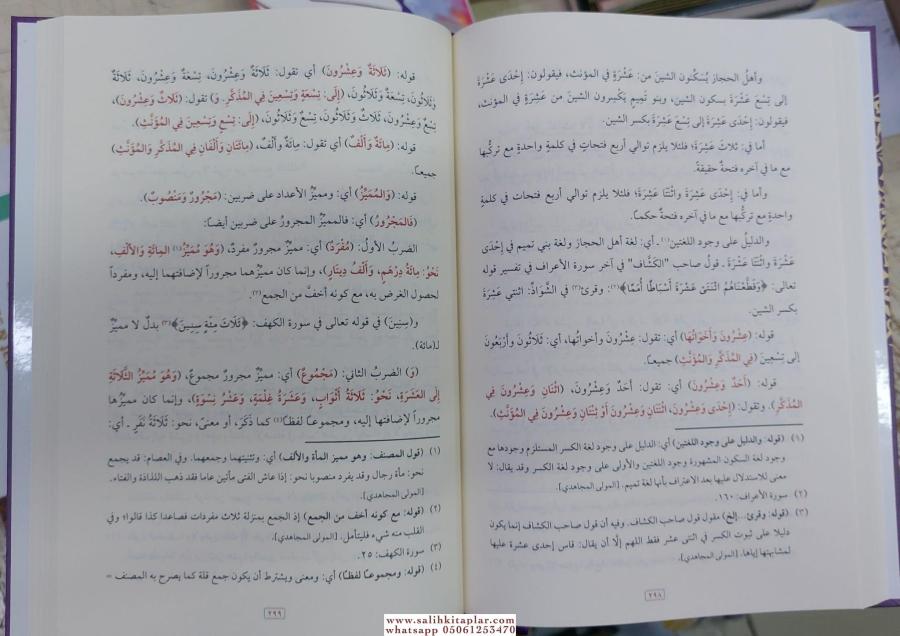 وأهلُ الحجاز يُسَكّنون الشينَ من: عَشْرَةٍ في المؤنث، فيقولون: إِحْدَى عَشْرَةَ
إلى تِسْعَ عَشْرَةَ بسكون الشين، وبنو تَمِيمٍ يَكْسِرون الشينَ من عَشِرَةٍ في المؤنث،
فيقولون: إِحْدَى عَشِرَةَ إلى تِسْعَ عَشِرَةَ بكسر الشين.
أما في: ثَلاثَ عَشْرَةَ؛ فلئلا يلزم توالي أربع فتحاتٍ في كلمةٍ واحدةٍ مع تركُّبها
مع ما في آخره فتحةٌ حقيقةً.
وأما في: إِحْدَى عَشْرَةَ وَاثْنَتَا عَشْرَةَ؛ فلئلا يلزم توالي أربع فتحات في كلمةٍ
واحدةٍ مع تركُّبها مع ما في آخره فتحةٌ حكماً.
والدليلُ على وجود اللغتين(١) ـ أي: لغة أهل الحجاز ولغة بني تميم في إِحْدَى
عَشْرَةَ واثْنَتَا عَشْرَةَ ـ قولُ صاحب "الكَشَّاف" في آخر سورة الأعراف في تفسير قوله
تعالى: ﴿وَقَطَّعْنَاهُمُ اثْنَتَيْ عَشْرَةَ أَسْبَاطًا أُمَمًا﴾(٢): وقرئ(٣) في الشَّوَاذِّ: اثنتي عَشِرَةَ
بكسر الشين.
قوله: (عِشْرُونَ وَأَخَوَاتُهَا) أي: تقول: عِشْرُونَ وأخواتُها، أي: ثَلاثُونَ وأَرْبَعُونَ
إلى تِسْعِينَ (فِي المُذَكَّرِ وَالمُؤَنَّثِ) جميعاً.
قوله: (أَحَدٌ وَعِشْرُونَ) أي: تقول: أَحَدٌ وَعِشْرُونَ، (اثْنَانِ وَعِشْرُونَ فِي
المُذَكَّرِ). وتقول: (إِحْدَى وَعِشْرُونَ، اثْنَتَانِ وَعِشْرُونَ أَوْ ثِنْتَانِ وَعِشْرُونَ فِي المُؤَنَّثِ).
(١) (قوله: والدليل على وجود اللغتين) أي: الدليل على وجود لغة الكسر المستلزم وجودها مع
وجود لغة السكون المشهورة وجود اللغتين والأولى على وجود لغة الكسر وقد يقال: لا
معنى للاستدلال عليها بعد الاعتراف بأنها لغة تميم. [المولى المجاهدي].
(٢) سورة الأعراف: ١٦٠.
(٣) (قوله: وقرئ...إلخ) مقول قول صاحب الكشاف. وفيه أن قول صاحب الكشاف إنما يكون
دليلا على ثبوت الكسر في اثنتى عشر فقط اللهم إلّا أن يقال: قاس إحدى عشرة عليها
لمشابهتها إياها. [المولى المجاهدي].
٢٩٨
قوله: (ثَلَاثَةٌ وَعِشْرُونَ) أي تقول: ثَلَاثَةٌ وَعِشْرُونَ، تِسْعَةٌ وَعِشْرُونَ، ثَلَاثَةٌ
وَثَلَاثُونَ، تِسْعَةٌ وَثَلَاثُونَ، (إِلَى: تِسْعَةٍ وَتِسْعِينَ فِي المُذَكَّرِ. وَ) تقول: (ثَلاثٌ وَعِشْرُونَ)،
تِسْعٌ وَعِشْرُونَ، ثَلَاثٌ وَثَلَاثُونَ، تِسْعٌ وَثَلَاثُونَ، (إِلَى: تِسْعٍ وَتِسْعِينَ فِي المُؤَنَّثِ).
قوله: (مِائَةٌ وَأَلْفٌ) أي تقول: مِائَةٌ وأَلْفٌ، (مِائَتَانِ وَأَلْفَانِ فِي المُذَكَّرِ وَالمُؤَنَّثِ)
جميعاً.
قوله: (وَالمُمَيِّزُ) أي: ومميِّزُ الأعداد على ضربين: (مَجْرُورٌ وَمَنْصُوبٌ).
(فَالمَجْرُورُ) أي: فالمميِّزُ المجرورُ على ضربين أيضاً:
الضربُ الأولُ: (مُفْرَدٌ) أي: مميِّزٌ مجرورٌ مفردٌ، (وَهُوَ مُمَيِّزُ(١) المِائَةِ وَالأَلْفِ،
نَحْوُ: مِائَةُ دِرْهَمٍ، وَأَلْفُ دِينَارٍ)، وإنما كان مميِّزُهما مجروراً لإضافتهما إليه، ومفرداً
لحصول الغرض به، مع كونه أخفَّ من الجمع(٢).
و(سِنِينَ) في قوله تعالى في سورة الكهف: ﴿ثَلَاثَ مِئَةٍ سِنِينَ﴾(٣) بدلٌ لا مميِّزٌ
لـ(مائة).
(وَ) الضربُ الثاني: (مَجْمُوعٌ) أي: مميِّزٌ مجرورٌ مجموعٌ، (وَهُوَ مُمَيِّزُ الثَّلَاثَةِ
إِلَى العَشَرَةِ، نَحْوُ: ثَلَاثَةُ أَثْوَابٍ، وَعَشَرَةُ غِلْمَةٍ، وَعَشْرُ نِسْوَةٍ)، وإنما كان مميِّزُها
مجروراً لإضافتها إليه، ومجموعاً لفظاً(٤) كما ذَكَرَ، أو معنىً، نحو: ثَلَاثَةُ نَفَرٍ ـ أي:
(١) (قول المصنف: وهو مميز المأة والألف) أي: وتثنيتهما وجمعهما. وفي العصام: قد يجمع
نحو: مأة رجال وقد يفرد منصوبا نحو: إذا عاش الفتى مأتين عاما فقد ذهب اللذاذة والفتاء.
[المولى المجاهدي].
(٢) (قوله: مع كونه أخف من الجمع) إذ الجمع بمنزلة ثلاث مفردات فصاعدا كذا قالوا؛ وفي
القلب منه شيء فليتأمل. [المولى المجاهدي].
(٣) سورة الكهف: ٢٥.
(٤) (قوله: ومجموعاً لفظاً) أي: ومعنى ويشترط أن يكون جمع قلة كما يصرح به المصنف =
٢٩٩
www.salihkitaplar.com
whatsapp 05061253470